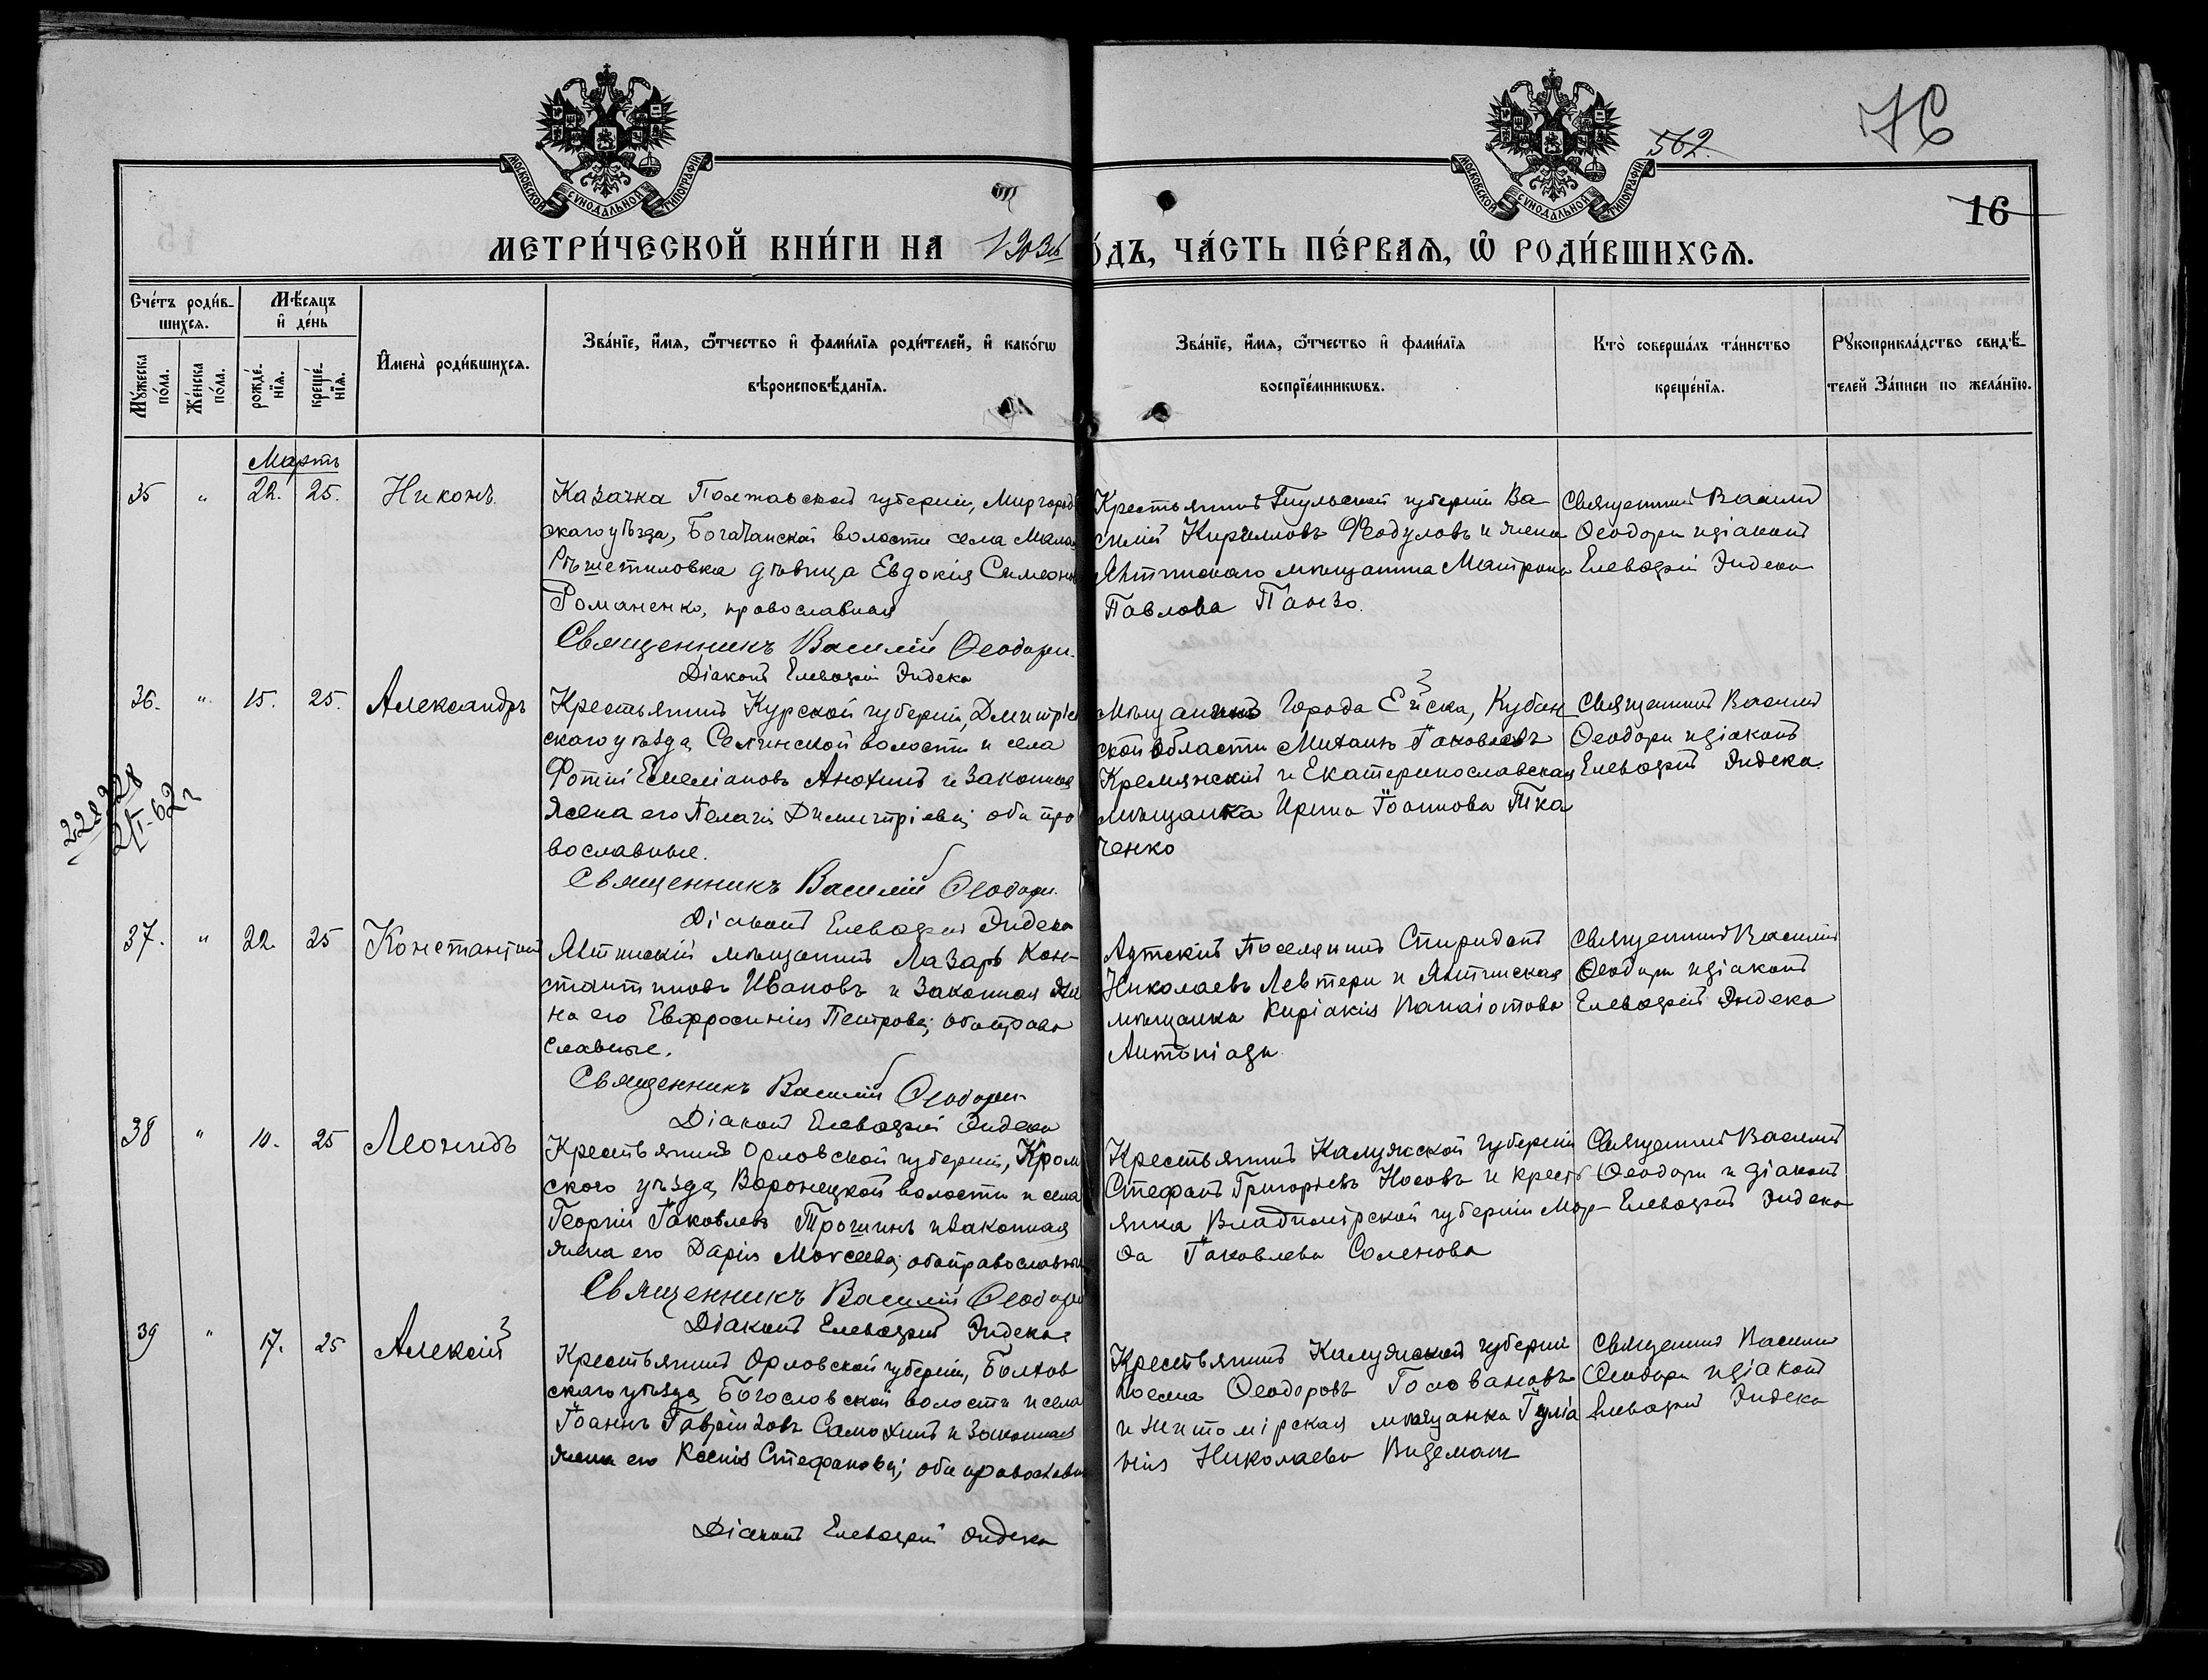 562.
76
16
МОСКОВСКОЙ СѴНОДАЛЬНОЙ ТИПОГРАФІИ
МОСКОВСКОЙ СѴНОДАЛЬНОЙ ТИПОГРАФІИ
МЕТРИ́ЧЕСКОЙ КНИ́ГИ НА 1903й
ОДЪ, ЧА́СТЬ ПЕ́РВАЯ, Ѽ РОДИ́ВШИХСѦ.
Сче́тъ роди́в-
шихсѧ.
Мꙋ́жеска по́ла.
Же́нска по́ла.
Мѣ́сѧцъ
и҆ де́нь
рожде́-
нїѧ.
креще́-
нїѧ.
И҆мена̀ роди́вшихсѧ.
Зва́нїе, и҆́мѧ, ѻ҆́тчество и҆ фами́лїѧ роди́телей, и҆ како́гѡ
вѣроисповѣ́данїѧ.
Зва́нїе, и҆́мѧ, ѻ҆́тчество и҆ фами́лїѧ
воспрїе́мникѡвъ.
Кто̀ соверша́лъ та́инство
креще́нїѧ.
Рꙋкоприкла́дство свидѣ́-
телей За́писи по жела́нїю.
Мартъ
35 " 22. 25. Никонъ
Казачка Полтавской губерніи, Миргород
скаго уѣзда, Богачанской волости села Малая
Рѣшетиловка дѣвица Евдокія Симеонов
Романенко, православная
Священникъ Василій Ѳеодори.
Діаконъ Елевѳерій Эндека
Крестьянинъ Тульской губерніи Ва-
силій Кирилловъ Ѳеодуловъ и жена
Ялтинскаго мѣщанина Матрона
Павлова Панзо.
Священникъ Василій
Ѳеодори и діаконъ
Елевѳерій Эндека
36. " 15. 25. Александръ
Крестьянинъ Курской губерніи, Дмитріев
скаго уѣзда, Селинской волости и села
Фотій Емеліановъ Анохинъ и законная
жена его Пелагія Димитріева; оба пра
вославные.
Священникъ Василій Ѳеодори.
Діаконъ Елевѳерій Эндека
Мѣщанинъ города Ейска, Кубан
ской области Михаилъ Іаковлевъ
Кремянскій и Екатеринославская
мѣщанка Ирина Іоаннова Тка
ченко
Священникъ Василій
Ѳеодори и діаконъ
Елевѳерій Эндека.
228
37. " 22. 25 Константинъ
Ялтинскій мѣщанинъ Лазарь Кон-
стантиновъ Ивановъ и законная же
на его Евфросинія Петрова; оба право
славные.
Священникъ Василій Ѳеодори
Діаконъ Елевѳерій Эндека
Аутскій поселянинъ Спиридонъ
Николаевъ Левтери и Ялтинская
мѣщанка Киріакія Панаіотова
Антоніади
Священникъ Василій
Ѳеодори и діаконъ
Елевѳерій Эндека
38 " 10. 25 Леонидъ
Крестьянинъ Орловской губерніи, Кром
скаго уѣзда, Воронецкой волости и села
Георгій Іаковлевъ Трошинъ и законная
жена его Дарія Моѵсеева; оба православны
Священникъ Василій Ѳеодори
Діаконъ Елевѳерій Эндека
Крестьянинъ Калужской губерніи
Стефанъ Григоріевъ Носовъ и кресть
янка Владимірской губерніи Мар-
ѳа Іаковлева Соленова
Священникъ Василій
Ѳеодори и діаконъ
Елевѳерій Эндека
39 " 17. 25 Алексій
Крестьянинъ Орловской губерніи, Болхов
скаго уѣзда, Богословской волости и села
Іоаннъ Гавріиловъ Самохинъ и законная
жена его Ксенія Стефанова; оба православн
Діаконъ Елевѳерій Эндека
Крестьянинъ Калужской губерніи
Косма Ѳеодоровъ Головановъ
и Житомірская мѣщанка Іуліа
нія Николаева Видеманъ
Священникъ Василій
Ѳеодори и діаконъ
Елевѳерій Эндека